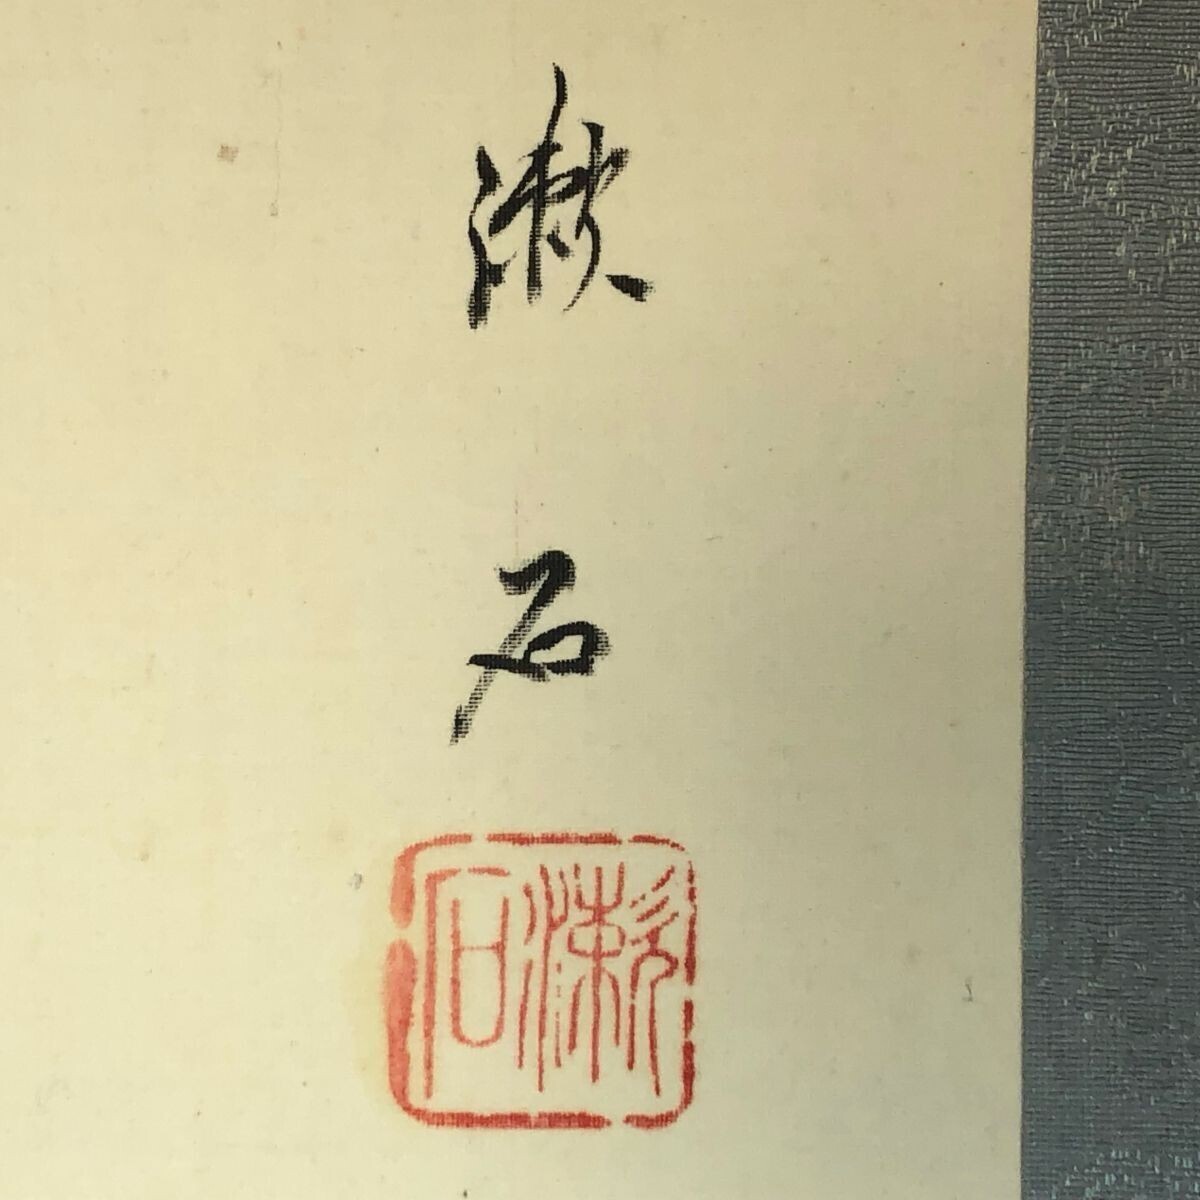 漱
石
漱石